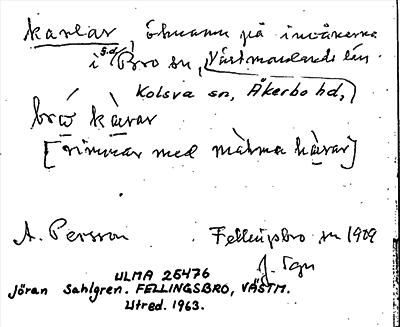 karlar, öknamn på invånarna
i s.d. Bro sn, Västmanlands län.
Kolsva sn, Åkerbo hd,
brå kàrar
[rimmar med màlma kàrar]
A. Persson Fellingsbro sn 1909
J. Sgn
ULMA 26476
Jöran Sahlgren. FELLINGSBRO, VÄSTM.
Utred. 1963.